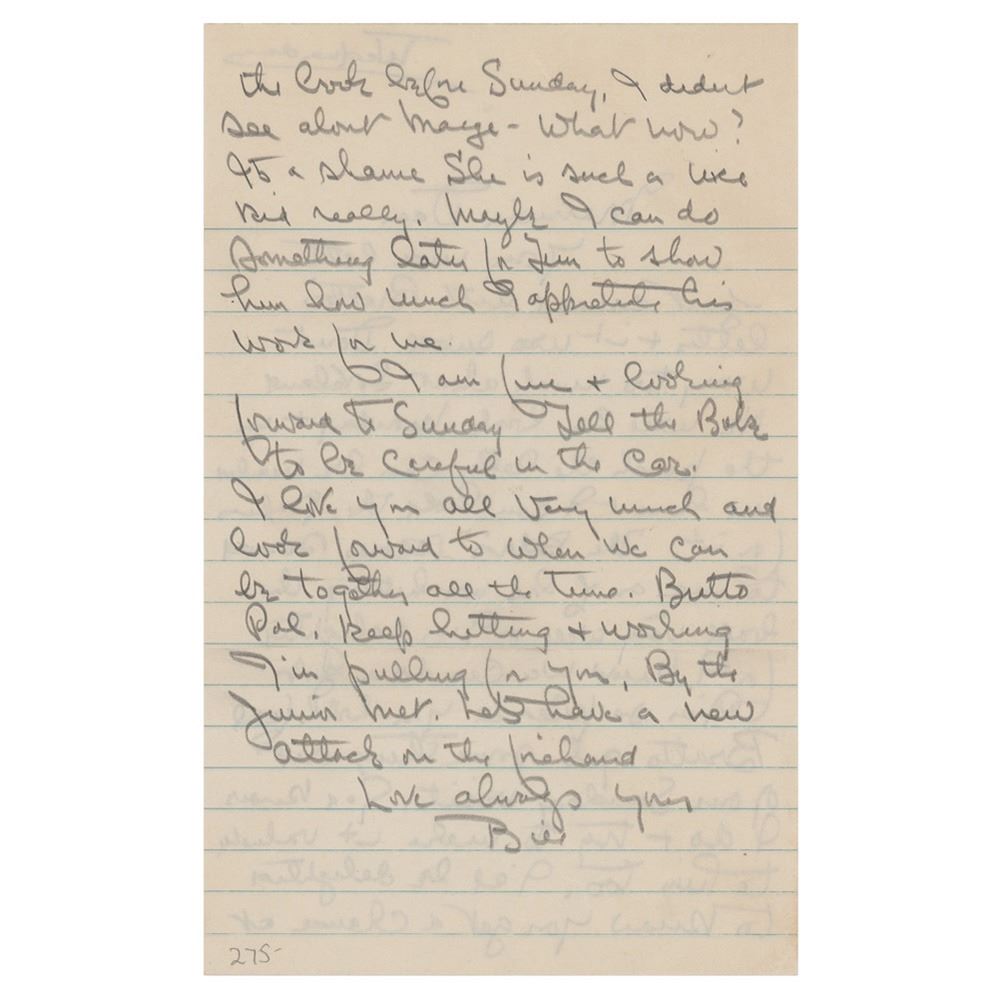 the book before Sunday, I didnt
see about Marge - What now?
Its a shame She is such a nice
kid really. Maybe I can do
something later for Jim to show
him how much I appreciate his
work for me.
I am fine + looking
forward to Sunday Tell the
to be careful in the car.
I love you all very much and
look forward to when we can
be together all the time. Butto
Pal. Keep hitting + working
I'm pulling for you, By the
Junior Met. Lets have a new
attack on the forehand
Love always yours
Bill
275-